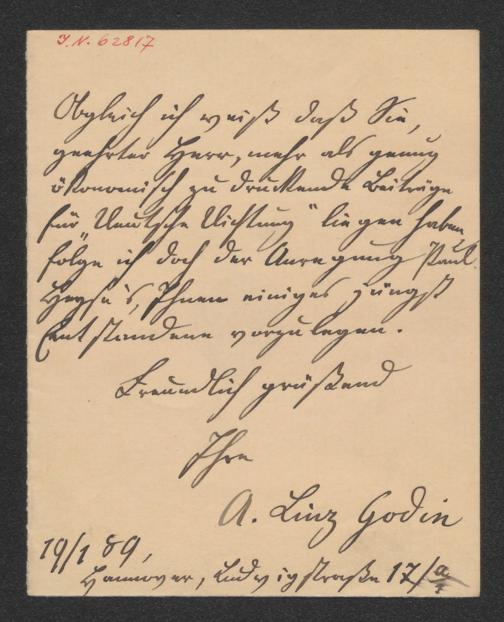 I. N. 62817
Obgleich ich weiß daß Sie,
geehrter Herr, mehr als genug
ökonomisch zu druckende Beiträge
für „Deutsche Dichtung“ liegen haben,
folge ich doch der Anregung Paul
Heyse's, Ihnen einiges jüngst
Entstandene vorzulegen.
Freundlich grüßend
Ihre
A. Linz Godin
19/1 89,
Hannover, Ludwigstraße 17/a